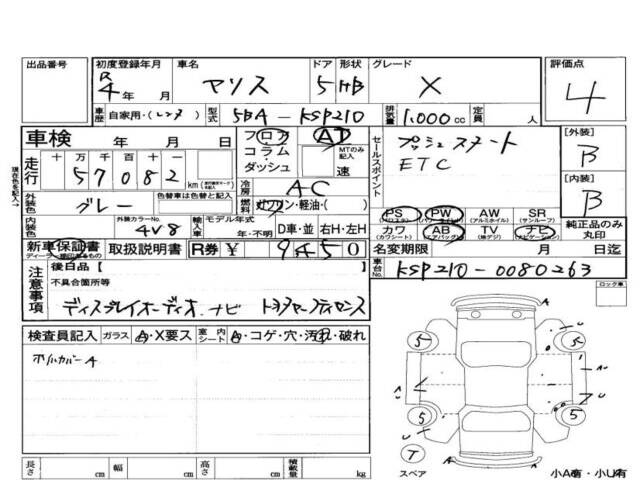 出品番号
初度登録年月 R4年 月
車名 ヤリス
ドア 5
形状 HB
グレード X
評価点 4
車歴 自家用・(レンタ)
型式 5BA-KSP210
排気量 1.000cc
定員 人
車検 年 月 日
フロア AT
コラム・ MTのみ記入
ダッシュ 速
セールスポイント
プッシュスタート
ETC
[外装] B
[内装] B
走行 十万千百十一
57082 km
冷房 AC
燃料 ガソリン・軽油・( )
外装色 グレー
色替車は色替と記入
内装色
外装カラーNo. 4V8
輸入車 モデル年式 年・不明
D車・並 右H・左H
PS (パワステ) PW (パワーウィンドウ) AW (アルミホイル) SR (サンルーフ)
カワ (カワシート) AB (エアバッグ) TV (純デジ) ナビ (ナビゲーション)
純正品のみ丸印
新車保証書
取扱説明書
R券 ¥ 9450
名変期限 月 日迄
車台No. KSP210-0080263
注意事項
後日品【 】
不具合箇所等
ディスプレイオーディオ.ナビ トヨタセーフティセンス
ロック車
検査員記入 ガラス A・X要ス
室内シート A・コゲ・穴・汚れ・破れ
ホイルカバーA
5
5
5
5
A
A
U
U
T
スペア
長さ cm 幅 cm 高さ cm 積載量 kg
小A有・小U有
現在色を記入